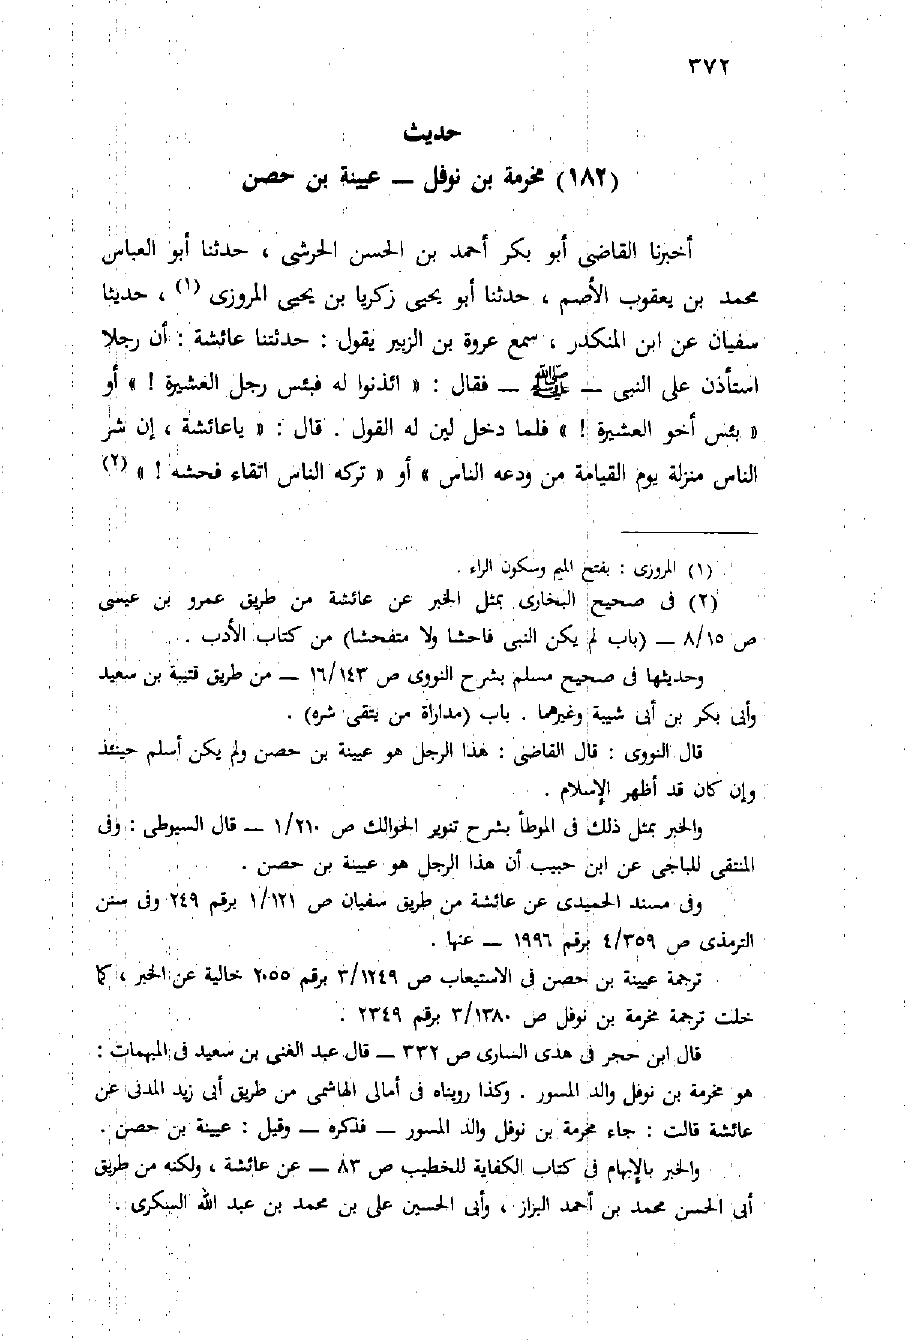 ٣٧٢
حديث
(١٨٢) مخرمة بن نوفل ــ عيينة بن حصن
أخبرنا القاضى أبو بكر أحمد بن الحسن الحرشى ، حدثنا أبو العباس
محمد بن يعقوب الأصم ، حدثنا أبو يحيى زكريا بن يحيى المروزى (١) ، حديثا
سفيان عن ابن المنكدر ، سمع عروة بن الزبير يقول : حدثتنا عائشة : أن رجلا
استأذن على النبى ــ ﷺ ــ فقال : « ائذنوا له فبئس رجل العشيرة ! » أو
« بئس أخو العشيرة ! » فلما دخل لين له القول . قال : « ياعائشة ، إن شر
الناس منزلة يوم القيامة من ودعه الناس » أو « تركه الناس اتقاء فحشه ! » (٢)
(١) المروزى : بفتح الميم وسكون الراء .
(٢) فى صحيح البخارى بمثل الخبر عن عائشة من طريق عمرو بن عيسى
ص ٨/١٥ ــ (باب لم يكن النبى فاحشا ولا متفحشا) من كتاب الأدب .
وحديثها فى صحيح مسلم بشرح النووى ص ١٦/١٤٣ ــ من طريق قتيبة بن سعيد
وأبى بكر بن أبى شيبة وغيرهما . باب (مداراة من يتقى شره) .
قال النووى : قال القاضى : هذا الرجل هو عيينة بن حصن ولم يكن أسلم حينئذ
وإن كان قد أظهر الإسلام .
والخبر بمثل ذلك فى الموطأ بشرح تنوير الحوالك ص ١/٢١٠ ــ قال السيوطى : وفى
المنتقى للباجى عن ابن حبيب أن هذا الرجل هو عيينة بن حصن .
وفى مسند الحميدى عن عائشة من طريق سفيان ص ١/١٢١ برقم ٢٤٩ وفى سنن
الترمذى ص ٤/٣٥٩ برقم ١٩٩٦ ــ عنها .
ترجمة عيينة بن حصن فى الاستيعاب ص ٣/١٢٤٩ برقم ٢٠٥٥ خالية عن الخبر ، كما
خلت ترجمة مخرمة بن نوفل ص ٣/١٣٨٠ برقم ٢٣٤٩ .
قال ابن حجر فى هدى السارى ص ٣٣٢ ــ قال عبد الغنى بن سعيد فى المبهمات :
هو مخرمة بن نوفل والد المسور . وكذا رويناه فى أمالى الهاشمى من طريق أبى زيد المدنى عن
عائشة قالت : جاء مخرمة بن نوفل والد المسور ــ فذكره ــ وقيل : عيينة بن حصن .
والخبر بالإبهام فى كتاب الكفاية للخطيب ص ٨٣ ــ عن عائشة ، ولكنه من طريق
أبى الحسن محمد بن أحمد البزاز ، وأبى الحسين على بن محمد بن عبد الله السكرى .